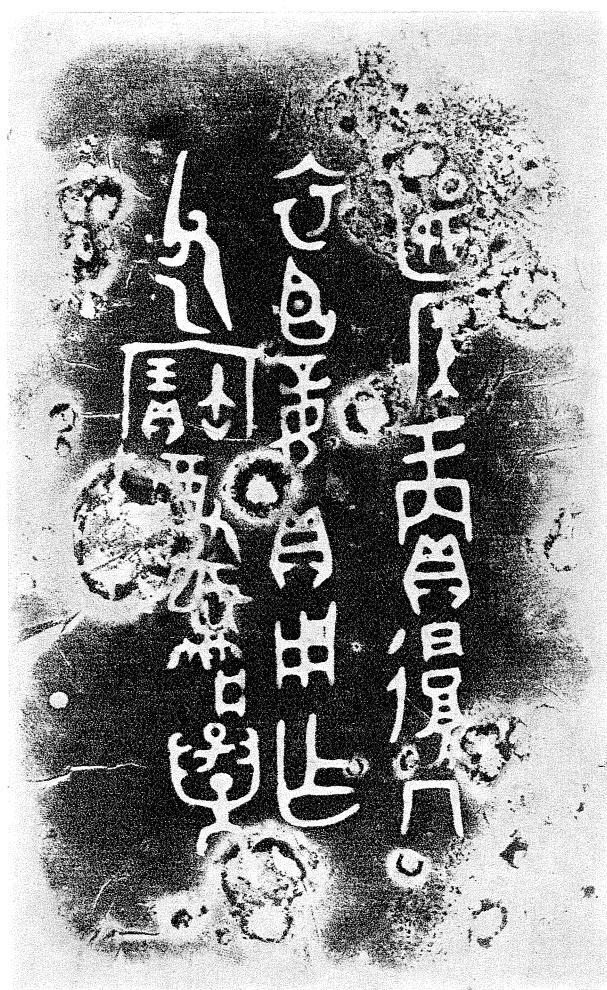 匽侯賞復冂
衣臣妾貝用乍
父乙寶尊彝